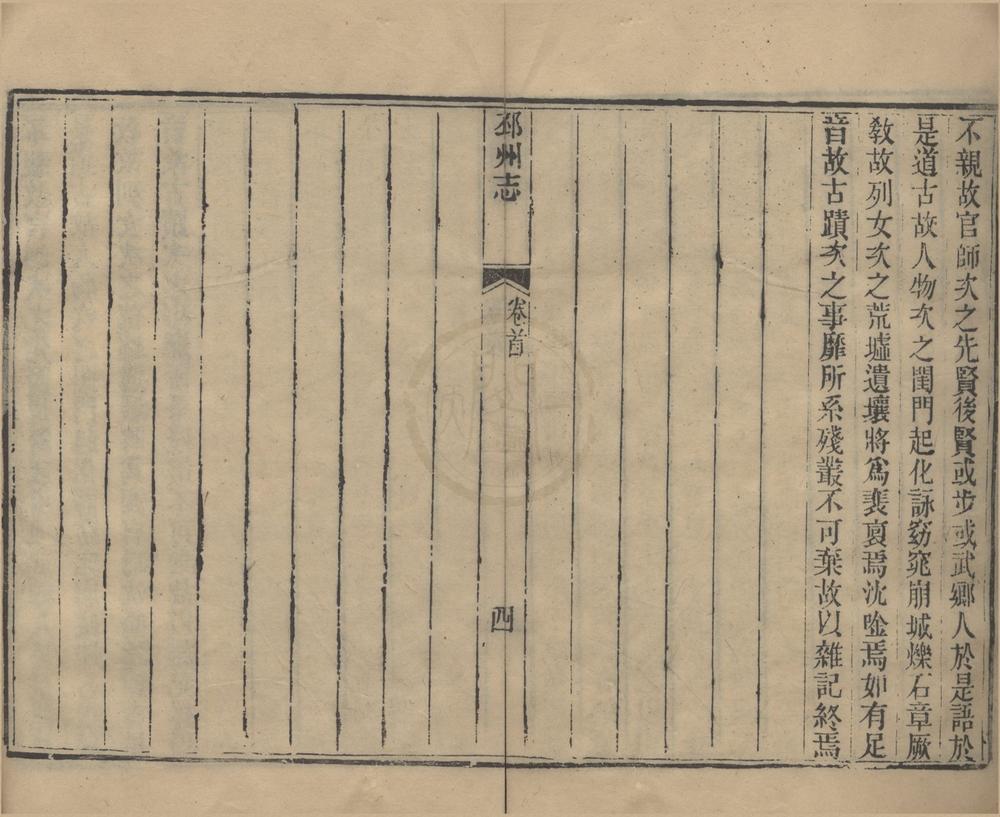 不親故官師次之先賢後賢或步或武鄉人於是語於
是道古故人物次之閨門起化詠窈窕崩城爍石章厥
敎故列女次之荒墟遺壤將爲裴裒焉沈唫焉如有足
音故古蹟次之事靡所系殘叢不可棄故以雜記終焉
邳州志
卷首
四